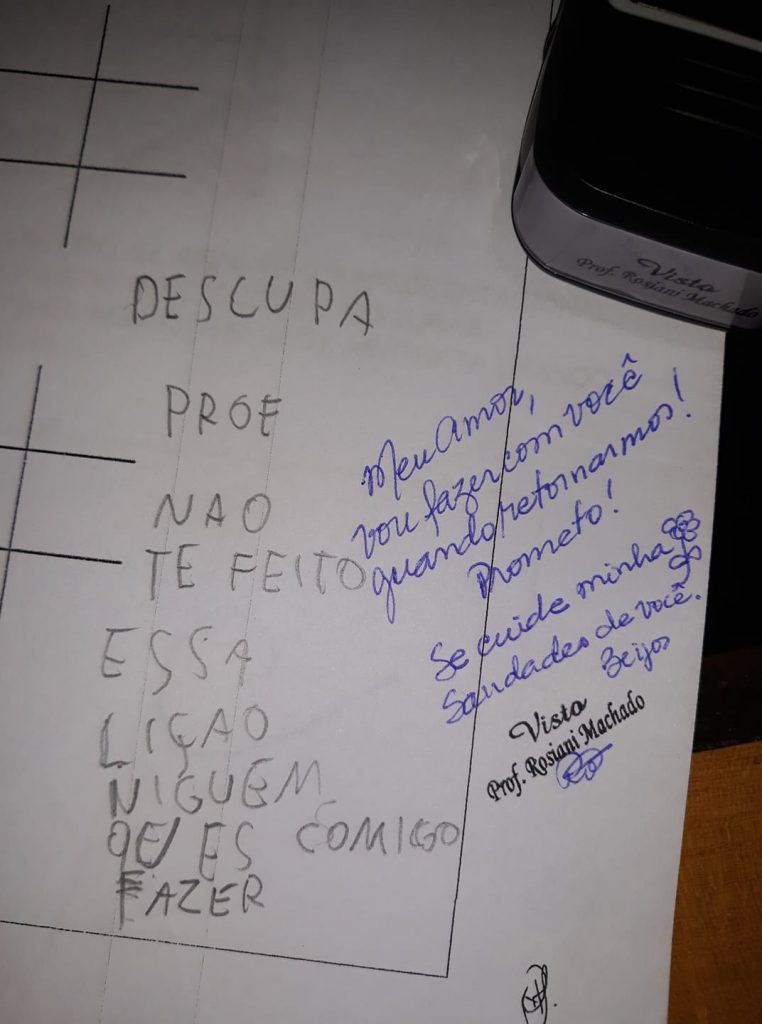 DESCUPA
PROE
NAO
TE FEITO
ESSA
LIÇAO
NIGUEM
QE ES COMIGO
FAZER
Meu Amor,
vou fazer com você
quando retornarmos!
Prometo!
Se cuide minha
Saudades de você.
Beijos
Visto
Prof. Rosiani Machado
Visto
Prof. Rosiani Machado